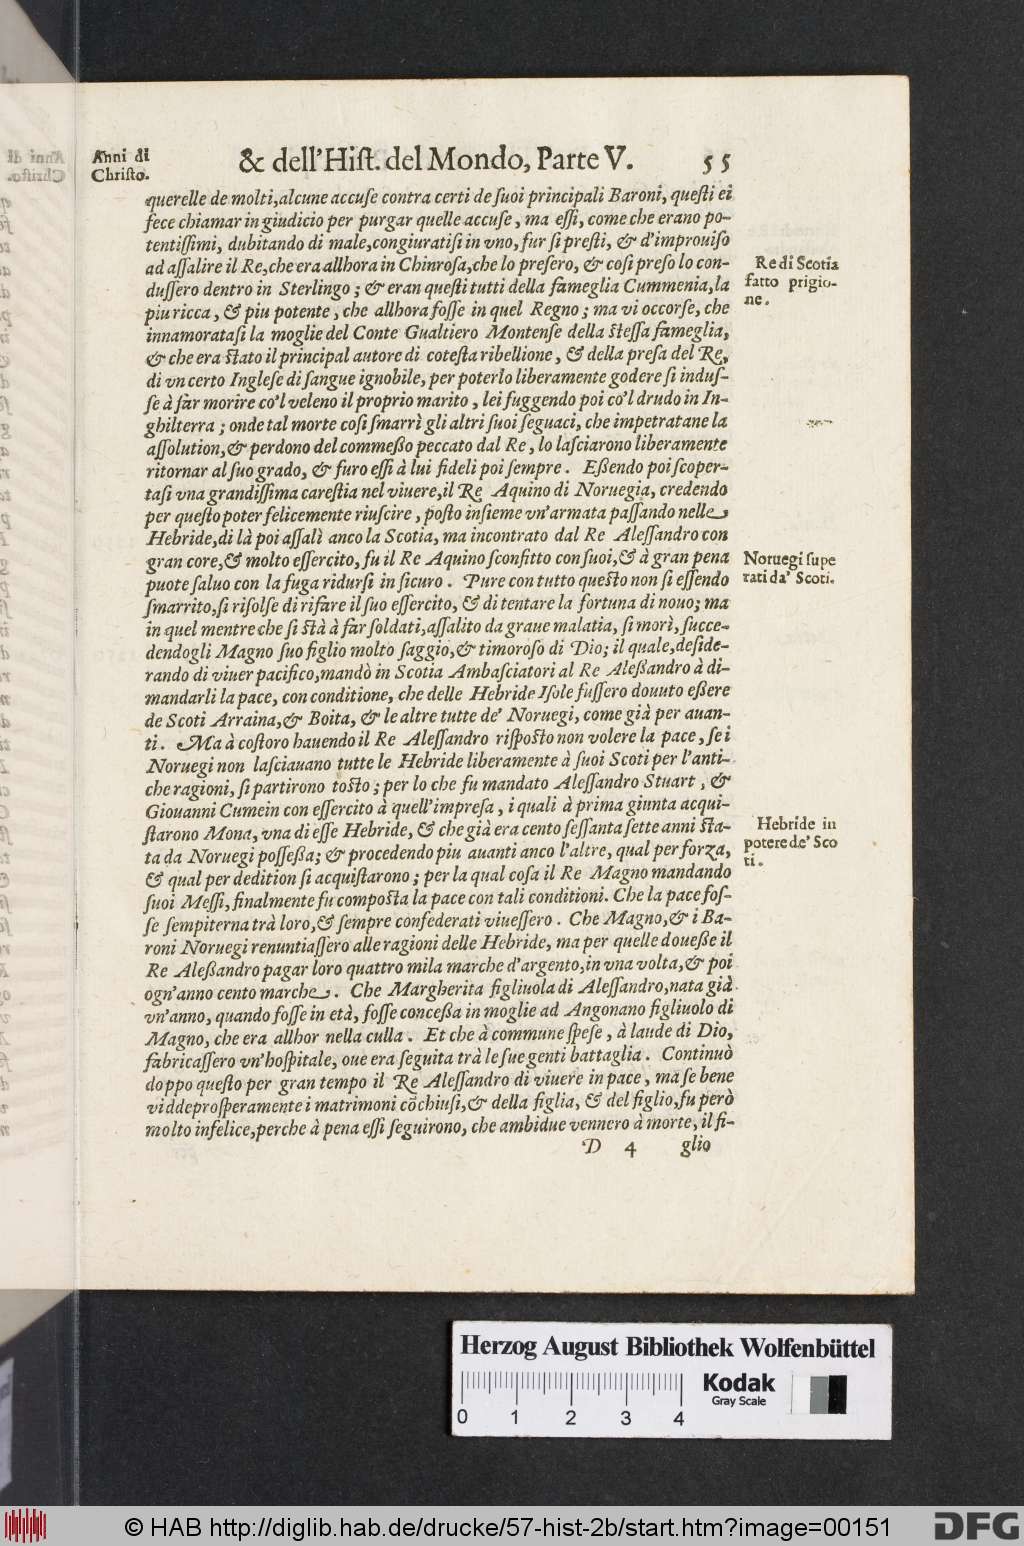 Anni di
Christo.
& dell'Hiſt. del Mondo, Parte V. 55
querelle de molti, alcune accuſe contra certi de ſuoi principali Baroni, queſti ei
fece chiamar in giudicio per purgar quelle accuſe, ma eſſi, come che erano po-
tentiſſimi, dubitando di male, congiuratiſi in vno, fur ſi preſti, & d'improuiſo
ad aſſalire il Re, che era allhora in Chinroſa, che lo preſero, & coſi preſo lo con-
duſſero dentro in Sterlingo; & eran queſti tutti della fameglia Cummenia, la
piu ricca, & piu potente, che allhora foſſe in quel Regno; ma vi occorſe, che
innamorataſi la moglie del Conte Gualtiero Montenſe della ſteſſa fameglia,
& che era ſtato il principal autore di coteſta ribellione, & della preſa del Re,
di vn certo Ingleſe di ſangue ignobile, per poterlo liberamente godere ſi induſ-
ſe à far morire co'l veleno il proprio marito, lei fuggendo poi co'l drudo in In-
ghilterra; onde tal morte coſi ſmarrì gli altri ſuoi ſeguaci, che impetratane la
aſſolution, & perdono del commeßo peccato dal Re, lo laſciarono liberamente
ritornar al ſuo grado, & furo eſſi à lui fideli poi ſempre. Eßendo poi ſcoper-
taſi vna grandiſſima careſtia nel viuere, il Re Aquino di Noruegia, credendo
per queſto poter felicemente riuſcire, poſto inſieme vn'armata paſſando nelle
Hebride, di là poi aſſalì anco la Scotia, ma incontrato dal Re Aleſſandro con
gran core, & molto eſſercito, fu il Re Aquino ſconfitto con ſuoi, & à gran pena
puote ſaluo con la fuga ridurſi in ſicuro. Pure con tutto queſto non ſi eſſendo
ſmarrito, ſi riſolſe di rifare il ſuo eſſercito, & di tentare la fortuna di nouo; ma
in quel mentre che ſi ſtà à far ſoldati, aſſalito da graue malatia, ſi morì, ſucce-
dendogli Magno ſuo figlio molto ſaggio, & timoroſo di Dio; il quale, deſide-
rando di viuer pacifico, mandò in Scotia Ambaſciatori al Re Aleßandro à di-
mandarli la pace, con conditione, che delle Hebride Iſole fuſſero douuto eßere
de Scoti Arraina, & Boita, & le altre tutte de' Noruegi, come già per auan-
ti. Ma à coſtoro hauendo il Re Aleſſandro riſpoſto non volere la pace, ſe i
Noruegi non laſciauano tutte le Hebride liberamente à ſuoi Scoti per l'anti-
che ragioni, ſi partirono toſto; per lo che fu mandato Aleſſandro Stuart, &
Giouanni Cumein con eſſercito à quell'impreſa, i quali à prima giunta acqui-
ſtarono Mona, vna di eſſe Hebride, & che già era cento ſeſſanta ſette anni ſta-
ta da Noruegi poſſeßa; & procedendo piu auanti anco l'altre, qual per forza,
& qual per dedition ſi acquiſtarono; per la qual coſa il Re Magno mandando
ſuoi Meſſi, finalmente fu compoſta la pace con tali conditioni. Che la pace foſ-
ſe ſempiterna trà loro, & ſempre confederati viueſſero. Che Magno, & i Ba-
roni Noruegi renuntiaſſero alle ragioni delle Hebride, ma per quelle doueße il
Re Aleßandro pagar loro quattro mila marche d'argento, in vna volta, & poi
ogn'anno cento marche. Che Margherita figliuola di Aleſſandro, nata già
vn'anno, quando foſſe in età, foſſe conceßa in moglie ad Angonano figliuolo di
Magno, che era allhor nella culla. Et che à commune ſpeſe, à laude di Dio,
fabricaſſero vn'hoſpitale, oue era ſeguita trà le ſue genti battaglia. Continuò
doppo queſto per gran tempo il Re Aleſſandro di viuere in pace, ma ſe bene
vidde proſperamente i matrimoni cõchiuſi, & della figlia, & del figlio, fu però
molto infelice, perche à pena eſſi ſeguirono, che ambidue vennero à morte, il fi-
D 4 glio
Re di Scotia
fatto prigio-
ne.
Noruegi supe
rati da' Scoti.
Hebride in
potere de' Sco
ti.
Herzog August Bibliothek Wolfenbüttel
Kodak
Gray Scale
0 1 2 3 4
© HAB http://diglib.hab.de/drucke/57-hist-2b/start.htm?image=00151
DFG